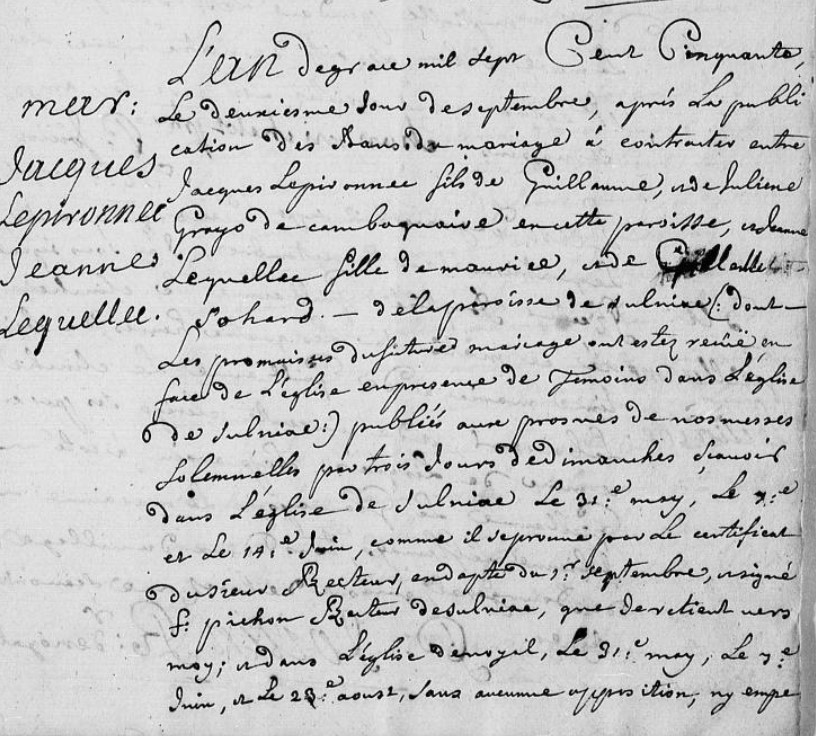 mar:
Jacques
Lepironnec
Jeanne
Lequellec.
L'an de grace mil sept Cent Cinquante,
Le deuxiesme Jour de septembre, aprés La publi
cation des Bans du mariage à contracter entre
Jacques Lepironnec fils de Guillaume, et de Juliene
Grayo de camboquaire en cette paroisse, et Jeanne
Lequellec fille de maurice, et de
Johard. — de la paroisse de sulniac (: dont —
Les promaisses du futur mariage ont estez reciie en
face de L'église en presence de Temoins dans L'église
de sulniac:) publiés aux prosnes de nos messes
solemnelles par trois Jours de dimanches sçavoir
dans L'église de sulniac Le 31:e may, Le 7:e
et Le 14:e Juin, comme il se prouve par Le certificat
du sieur Recteur, en dapte du 1:r septembre, et signé
f: pichon Recteur de sulniac, que Je retient vers
moy; et dans L'église d'enoyil, Le 31:e may, Le 7:e
Juin, et Le 23:e aoust, sans aucunne opposition, ny empe